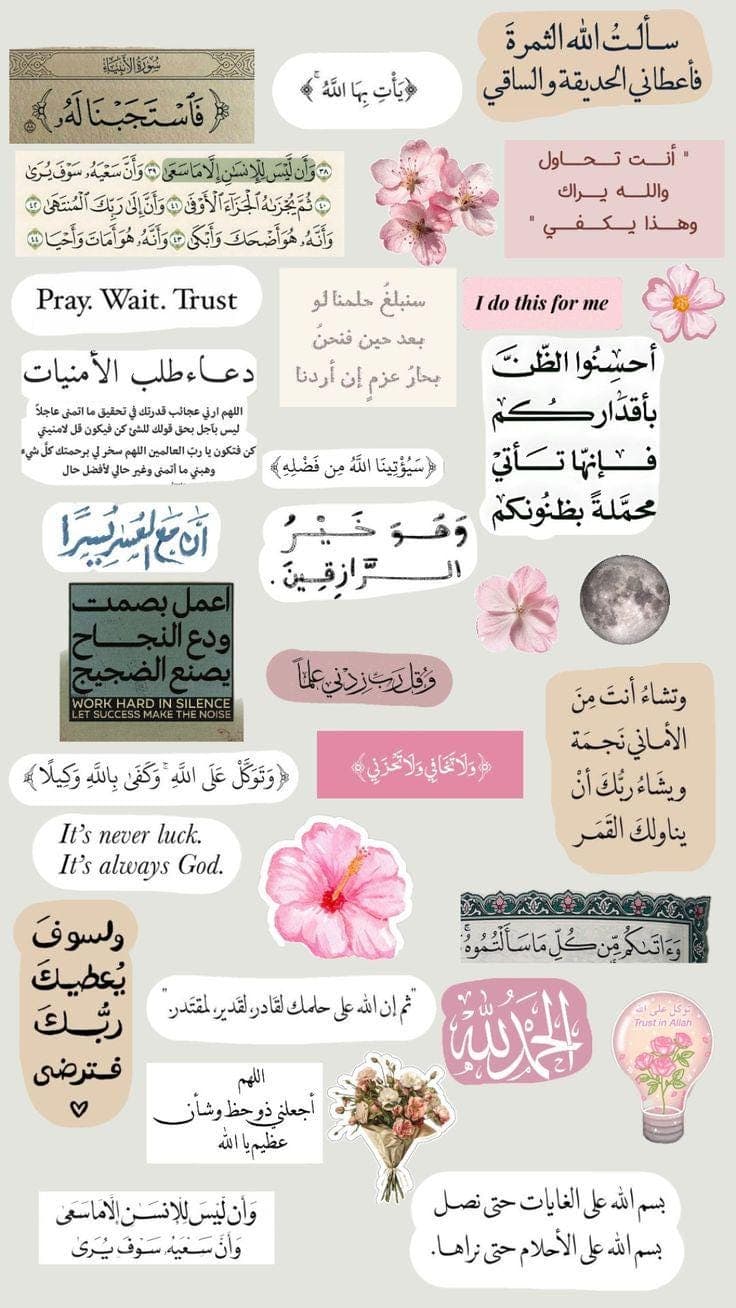 سُورَةُ الأَنبِيَاءِ
﴿فَٱسْتَجَبْنَا لَهُۥ﴾
﴿يَأْتِ بِهَا اللَّهُ ۚ﴾
سألتُ الله الثمرةَ
فأعطاني الحديقة والساقي
٣٨ وَأَن لَّيْسَ لِلْإِنسَٰنِ إِلَّا مَا سَعَىٰ ٣٩ وَأَنَّ سَعْيَهُۥ سَوْفَ يُرَىٰ
٤٠ ثُمَّ يُجْزَىٰهُ ٱلْجَزَآءَ ٱلْأَوْفَىٰ ٤١ وَأَنَّ إِلَىٰ رَبِّكَ ٱلْمُنتَهَىٰ ٤٢
وَأَنَّهُۥ هُوَ أَضْحَكَ وَأَبْكَىٰ ٤٣ وَأَنَّهُۥ هُوَ أَمَاتَ وَأَحْيَا ٤٤
" أنت تحاول
والله يراك
وهذا يكفي "
Pray. Wait. Trust
سنبلغُ حلمنا لو
بعد حين فنحنُ
بحارُ عزمٍ إن أردنا
I do this for me
دعاء طلب الأمنيات
اللهم ارني عجائب قدرتك في تحقيق ما اتمنى عاجلاً
ليس بآجل بحق قولك للشئ كن فيكون قل لامنيتي
كن فتكون يا ربّ العالمين اللهم سخر لي برحمتك كلّ شيء
وهبني ما أتمنى وغير حالي لأفضل حال
أحسِنُوا الظّنَّ
بأقدَاركُم
فإنهّا تأتيْ
محمَّلةً بظنُونكم
﴿سَيُؤْتِينَا اللَّهُ مِن فَضْلِهِ﴾
أن مع العسر يسرًا
وَهُوَ خَيْرُ
الرَّازِقِينَ.
اعمل بصمت
ودع النجاح
يصنع الضجيج
WORK HARD IN SILENCE
LET SUCCESS MAKE THE NOISE
وَقُل رَبِّ زِدْنِي عِلماً
وتشاءُ أنتَ مِنَ
الأماني نَجمَة
ويشَاءُ ربُّكَ أنْ
يناولكَ القَمَر
﴿وَلَا تَخَافِي وَلَا تَحْزَنِي﴾
﴿وَتَوَكَّلْ عَلَى اللَّهِ ۚ وَكَفَىٰ بِاللَّهِ وَكِيلًا﴾
It's never luck.
It's always God.
وَءَاتَىٰكُم مِّن كُلِّ مَا سَأَلْتُمُوهُ ۚ
ولسوفَ
يُعطيكَ
ربُّكَ
فترضى
"ثم إن الله على حلمك لقادر، لقدير، لمقتدر."
الحمد لله
توكل على الله
Trust in Allah
اللهم
أجعلني ذو حظ وشأن
عظيم يا الله
وَأَن لَّيْسَ لِلْإِنسَٰنِ إِلَّا مَا سَعَىٰ
وَأَنَّ سَعْيَهُۥ سَوْفَ يُرَىٰ
بسم الله على الغايات حتى نصل
بسم الله على الأحلام حتى نراها.